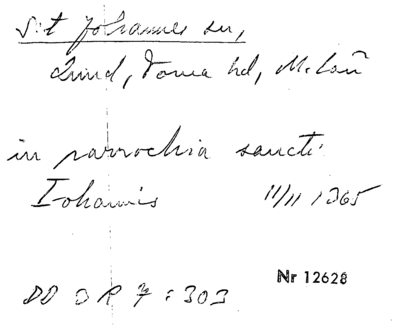 S:t Johannes sn,
Lund, Torna hd, M.län
in parrochia sancti
Iohannis 11/11 1365
Nr 12628
DD 3 R 7:303